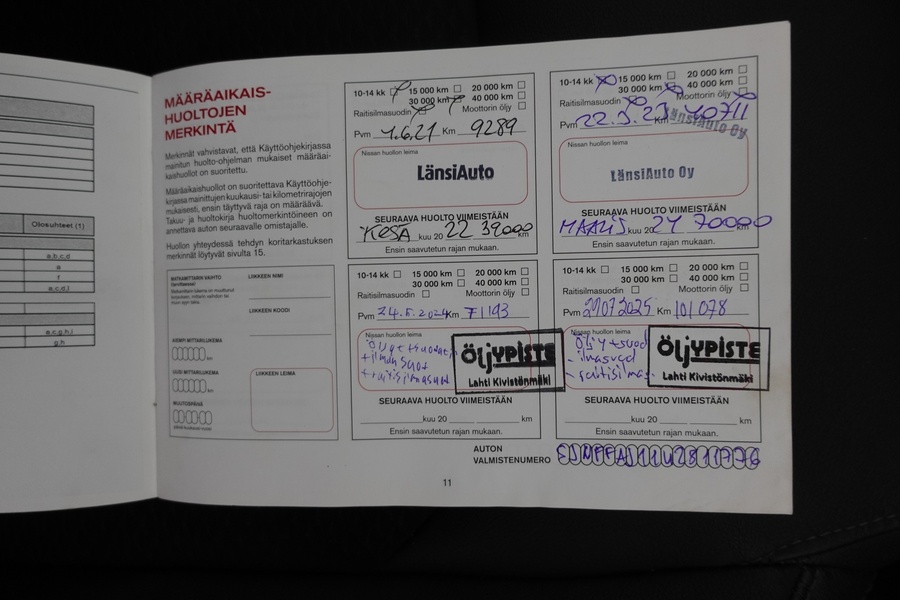 MÄÄRÄAIKAIS-
HUOLTOJEN
MERKINTÄ
Merkinnät vahvistavat, että Käyttöohjekirjassa
mainitun huolto-ohjelman mukaiset määräai-
kaishuollot on suoritettu.
Määräaikaishuollot on suoritettava Käyttöohje-
kirjassa mainittujen kuukausi- tai kilometrirajojen
mukaisesti, ensin täyttyvä raja on määräävä.
Takuu- ja huoltokirja huoltomerkintöineen on
annettava auton seuraavalle omistajalle.
Huollon yhteydessä tehdyn koritarkastuksen
merkinnät löytyvät sivulta 15.
MATKAMITTARIN VAIHTO
LIIKKEEN NIMI
LIIKKEEN KOODI
km
UUSI MITTARILUKEMA
km
LIIKKEEN LEIMA
MUUTOSPÄIVÄ
10-14 kk 15 000 km 20 000 km
30 000 km 40 000 km
Raitisilmasuodin Moottorin öljy
Pvm 1.6.21 Km 9289
Nissan huollon leima
LänsiAuto
SEURAAVA HUOLTO VIIMEISTÄÄN
KESÄ kuu 20 22 39000 km
Ensin saavutetun rajan mukaan.
10-14 kk 15 000 km 20 000 km
30 000 km 40 000 km
Raitisilmasuodin Moottorin öljy
Pvm 22.3.23 Km 40711
LänsiAuto Oy
Nissan huollon leima
LänsiAuto Oy
SEURAAVA HUOLTO VIIMEISTÄÄN
MAALIS kuu 20 24 70000 km
Ensin saavutetun rajan mukaan.
10-14 kk 15 000 km 20 000 km
30 000 km 40 000 km
Raitisilmasuodin Moottorin öljy
Pvm 24.5.2024 Km 71193
Nissan huollon leima
ÖljYPISTE
Lahti Kivistönmäki
SEURAAVA HUOLTO VIIMEISTÄÄN
kuu 20 km
Ensin saavutetun rajan mukaan.
10-14 kk 15 000 km 20 000 km
30 000 km 40 000 km
Raitisilmasuodin Moottorin öljy
Pvm Km 101078
Nissan huollon leima
Öljy+suod
- ilmasuod
ÖljYPISTE
Lahti Kivistönmäki
SEURAAVA HUOLTO VIIMEISTÄÄN
kuu 20 km
Ensin saavutetun rajan mukaan.
AUTON
VALMISTENUMERO
11
Olosuhteet (1)
a,b,c,d
a
f
a,c,d,i
a,c,g,h,i
g,h